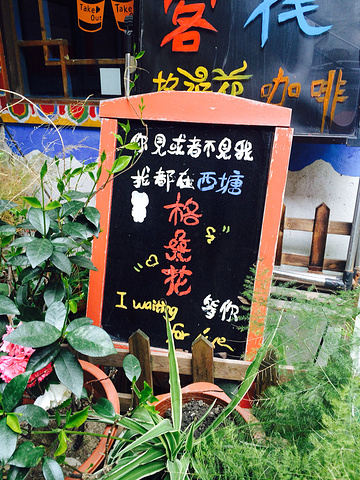 Take Out
Take
客栈
格桑花咖啡
你见或者不见我
我都在西塘
格桑花
等你
I waiting
for